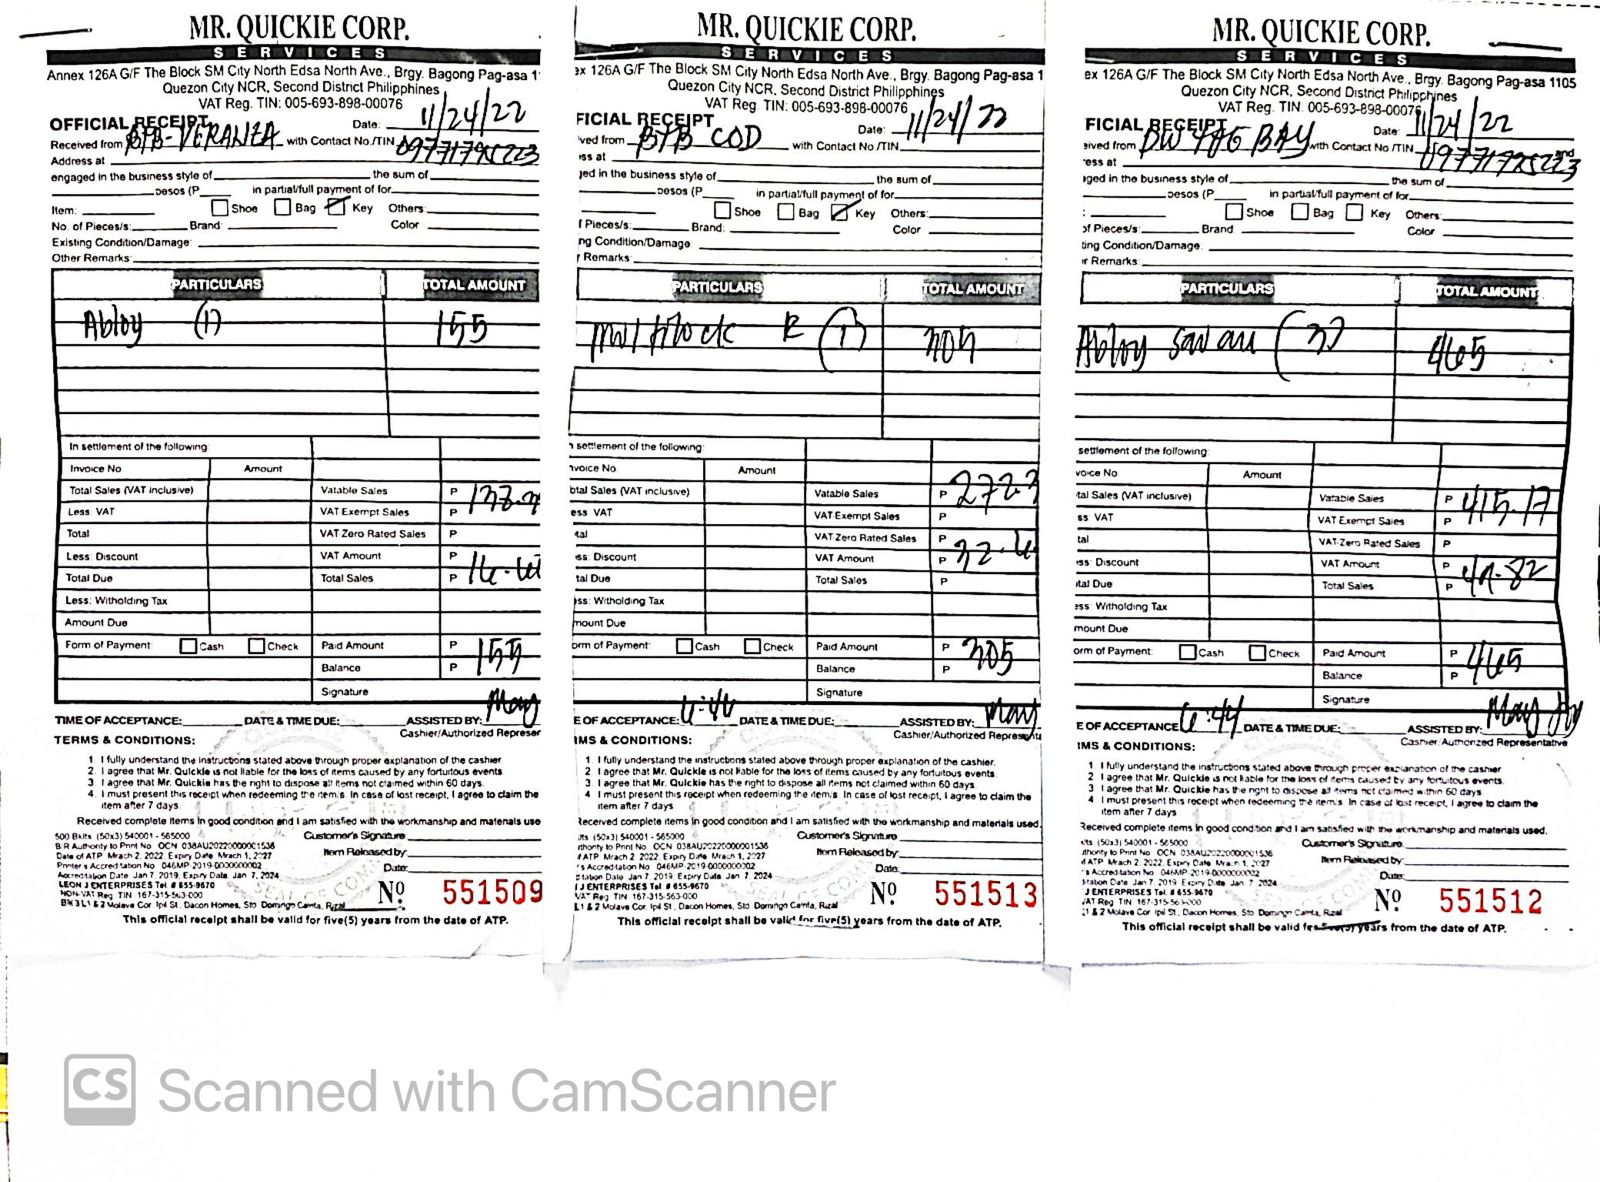 MR. QUICKIE CORP.
SERVICES
Annex 126A G/F The Block SM City North Edsa North Ave., Brgy. Bagong Pag-asa 1
Quezon City NCR, Second District Philippines
VAT Reg. TIN: 005-693-898-00076
OFFICIAL RECEIPT Date: 11/24/22
Received from BTB-VERANZA with Contact No./TIN 09771795223
Address at
engaged in the business style of the sum of
pesos (P in partial/full payment of for
Item: Shoe Bag Key Others:
No. of Pieces/s: Brand Color
Existing Condition/Damage
Other Remarks:
PARTICULARS TOTAL AMOUNT
Abloy (1) 155
In settlement of the following
Invoice No Amount
Total Sales (VAT inclusive) Vatable Sales P
Less: VAT VAT Exempt Sales P
Total VAT Zero Rated Sales P
Less: Discount VAT Amount P
Total Due Total Sales P
Less: Witholding Tax
Amount Due
Form of Payment: Cash Check Paid Amount P 155
Balance P
Signature
TIME OF ACCEPTANCE: DATE & TIME DUE: ASSISTED BY: May
Cashier/Authorized Represer
TERMS & CONDITIONS:
1 I fully understand the instructions stated above through proper explanation of the cashier
2. I agree that Mr. Quickie is not liable for the loss of items caused by any fortuitous events
3. I agree that Mr. Quickie has the right to dispose all items not claimed within 60 days.
4. I must present this receipt when redeeming the items. In case of lost receipt, I agree to claim the
item after 7 days
Received complete items in good condition and I am satisfied with the workmanship and materials use
500 Bklts (50x3) 540001 - 565000 Customer's Signature
BIR Authority to Print No OCN 038AU20220000001536 Item Released by:
Date of ATP Mrach 2, 2022, Expiry Date Mrach 1, 2027
Printer's Accreditation No 046MP 2019-0000000002 Date:
Accreditation Date Jan 7, 2019, Expiry Date Jan 7, 2024
LEON J ENTERPRISES Tel # 655-9670
NON-VAT Reg TIN 167-315-563-000 Nº 551509
L1 & 2 Molave Cor Ipil St, Dacon Homes, Sto Domingo Cainta, Rizal
This official receipt shall be valid for five(5) years from the date of ATP.
MR. QUICKIE CORP.
SERVICES
ex 126A G/F The Block SM City North Edsa North Ave., Brgy. Bagong Pag-asa 1
Quezon City NCR, Second District Philippines
VAT Reg. TIN: 005-693-898-00076
FICIAL RECEIPT Date: 11/24/22
ived from BTB COD with Contact No./TIN
ss at
jed in the business style of the sum of
pesos (P in partial/full payment of for
Shoe Bag Key Others:
f Pieces/s: Brand: Color
ng Condition/Damage
r Remarks:
PARTICULARS TOTAL AMOUNT
Mul t lock R (1) 305
n settlement of the following:
nvoice No Amount
otal Sales (VAT inclusive) Vatable Sales P 272.3
ess VAT VAT Exempt Sales P
tal VAT Zero Rated Sales P
ss: Discount VAT Amount P 32.6
tal Due Total Sales P
ss: Witholding Tax
mount Due
orm of Payment: Cash Check Paid Amount P 305
Balance P
Signature
E OF ACCEPTANCE: 6:46 DATE & TIME DUE: ASSISTED BY: May
Cashier/Authorized Represent
MS & CONDITIONS:
1 I fully understand the instructions stated above through proper explanation of the cashier.
2 I agree that Mr. Quickie is not liable for the loss of items caused by any fortuitous events
3 I agree that Mr. Quickie has the right to dispose all items not claimed within 60 days.
4 I must present this receipt when redeeming the items. In case of lost receipt, I agree to claim the
item after 7 days
Received complete items in good condition and I am satisfied with the workmanship and materials used.
lts (50x3) 540001 - 565000 Customer's Signature
thority to Print No OCN 038AU20220000001536 Item Released by:
ATP Mrach 2, 2022, Expiry Date Mrach 1, 2027
's Accreditation No 046MP 2019-0000000002 Date:
itation Date Jan 7, 2019, Expiry Date Jan 7, 2024
J ENTERPRISES Tel # 655-9670
VAT Reg TIN 167-315-563-000 Nº 551513
L1 & 2 Molave Cor Ipil St, Dacon Homes, Sto Domingo Cainta, Rizal
This official receipt shall be valid for five(5) years from the date of ATP.
MR. QUICKIE CORP.
SERVICES
ex 126A G/F The Block SM City North Edsa North Ave., Brgy. Bagong Pag-asa 1105
Quezon City NCR, Second District Philippines
VAT Reg. TIN: 005-693-898-00076
FICIAL RECEIPT Date: 11/24/22
eived from BAY with Contact No./TIN 09771795223
ess at
aged in the business style of the sum of
pesos (P in partial/full payment of for
: Shoe Bag Key Others:
of Pieces/s: Brand Color
ting Condition/Damage:
r Remarks:
PARTICULARS TOTAL AMOUNT
Abloy (3) 465
settlement of the following:
voice No Amount
tal Sales (VAT inclusive) Vatable Sales P 415.17
ss VAT VAT Exempt Sales P
tal VAT-Zero Rated Sales P
ss: Discount VAT Amount P 49.82
tal Due Total Sales P
ess Witholding Tax
mount Due
orm of Payment: Cash Check Paid Amount P 465
Balance P
Signature
E OF ACCEPTANCE 6:44 DATE & TIME DUE: ASSISTED BY: May
Cashier/Authorized Representative
MS & CONDITIONS:
1 I fully understand the instructions stated above through proper explanation of the cashier
2 I agree that Mr. Quickie is not liable for the loss of items caused by any fortuitous events.
3 I agree that Mr. Quickie has the right to dispose all items not claimed within 60 days
4 I must present this receipt when redeeming the items. In case of lost receipt, I agree to claim the
item after 7 days
Received complete items in good condition and I am satisfied with the workmanship and materials used.
lts (50x3) 540001 - 565000 Customer's Signature
uthority to Print No OCN 038AU20220000001536 Item Released by:
ATP Mrach 2, 2022, Expiry Date Mrach 1, 2027
's Accreditation No 046MP 2019-0000000002 Date:
itation Date Jan 7, 2019, Expiry Date Jan 7, 2024
J ENTERPRISES Tel # 655-9670
/AT Reg TIN 167-315-563-000 Nº 551512
1 & 2 Molave Cor Ipil St, Dacon Homes, Sto Domingo Cainta, Rizal
This official receipt shall be valid years from the date of ATP.
CS Scanned with CamScanner